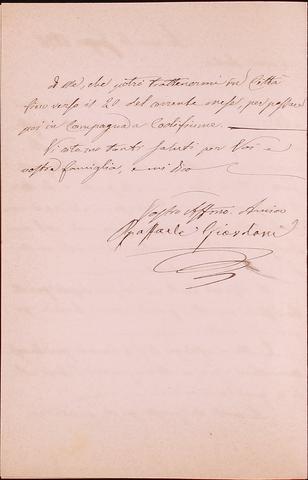 di me, che potrò trattenermi in Città
fino verso il 20 del corrente mese, per passare
poi in Campagna a
Vi ritorno tanti saluti per Voi e
vostra famiglia, e mi dico
Vostro Affmo. Amico
Raffaele Giordani